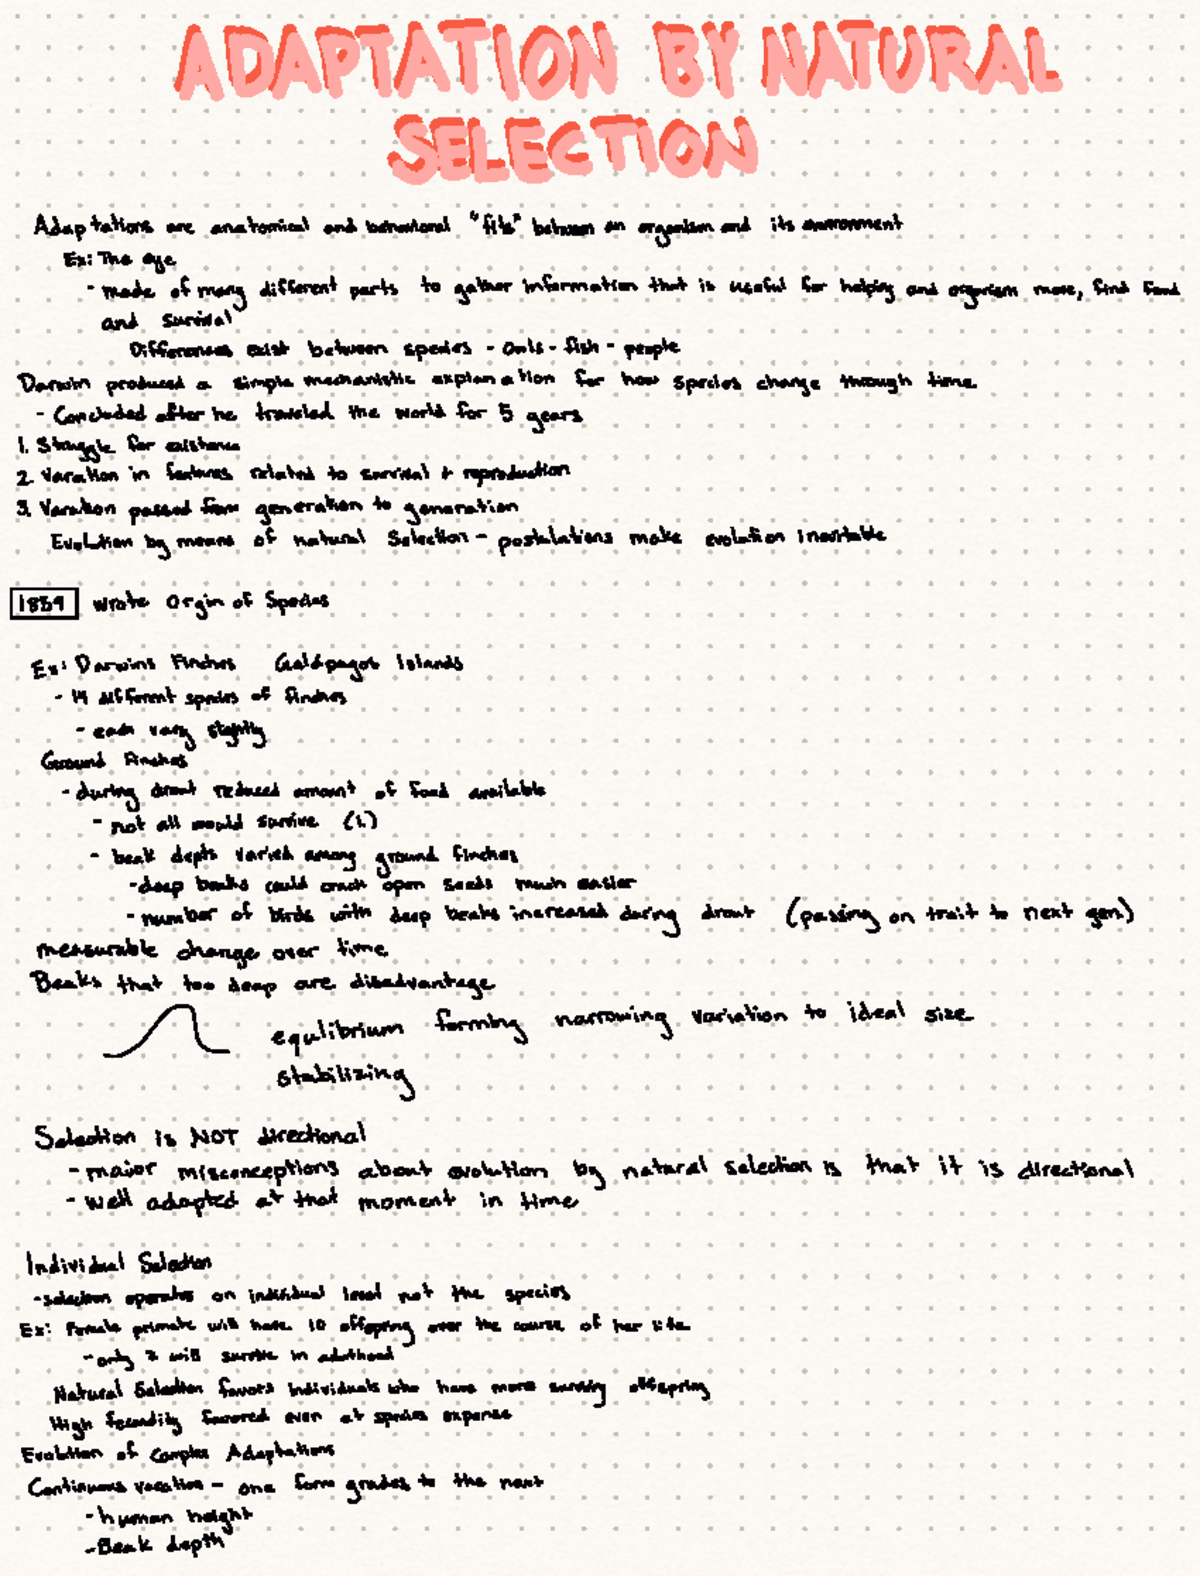 ADAPTATION BY NATURAL
SELECTION
Adaptations are anatomical and behavioral "fits" between an organism and its environment
Ex: The eye
- made of many different parts to gather information that is useful for helping and organism move, find food
and survival
Differences exist between species - owls - fish - people
Darwin produced a simple mechanistic explanation for how species change through time
- Concluded after he traveled the world for 5 years
1. Struggle for existence
2. Varation in features related to survival + reproduction
3. Varation passed from generation to generation
Evolution by means of natural Selection - postulations make evolution inevitable
1859 wrote Orgin of Species
Ex: Darwins Finches Galápagos Islands
- 14 different species of finches
- each vary slightly
Ground Finches
- during drout reduced amount of food available
- not all would survive (1.)
- beak depts varied among ground finches
- deep beaks could crack open seeds much easier
- number of birds with deep beaks increased during drout (passing on trait to next gen)
measurable change over time
Beaks that too deep are disadvantage
equlibrium forming narrowing variation to ideal size
stabilizing
Selection is NOT directional
- major misconceptions about evolution by natural selection is that it is directional
- well adapted at that moment in time
Individual Selection
- selection operates on individual level not the species
Ex: Female primate will have 10 offspring over the course of her life
- only 2 will survive in adulthood
Natural Selection favors individuals who have more surviving offspring
High fecundity favored even at species expense
Evolution of Complex Adaptations
Continuous varation - one form grades to the next
- human height
- Beak depth